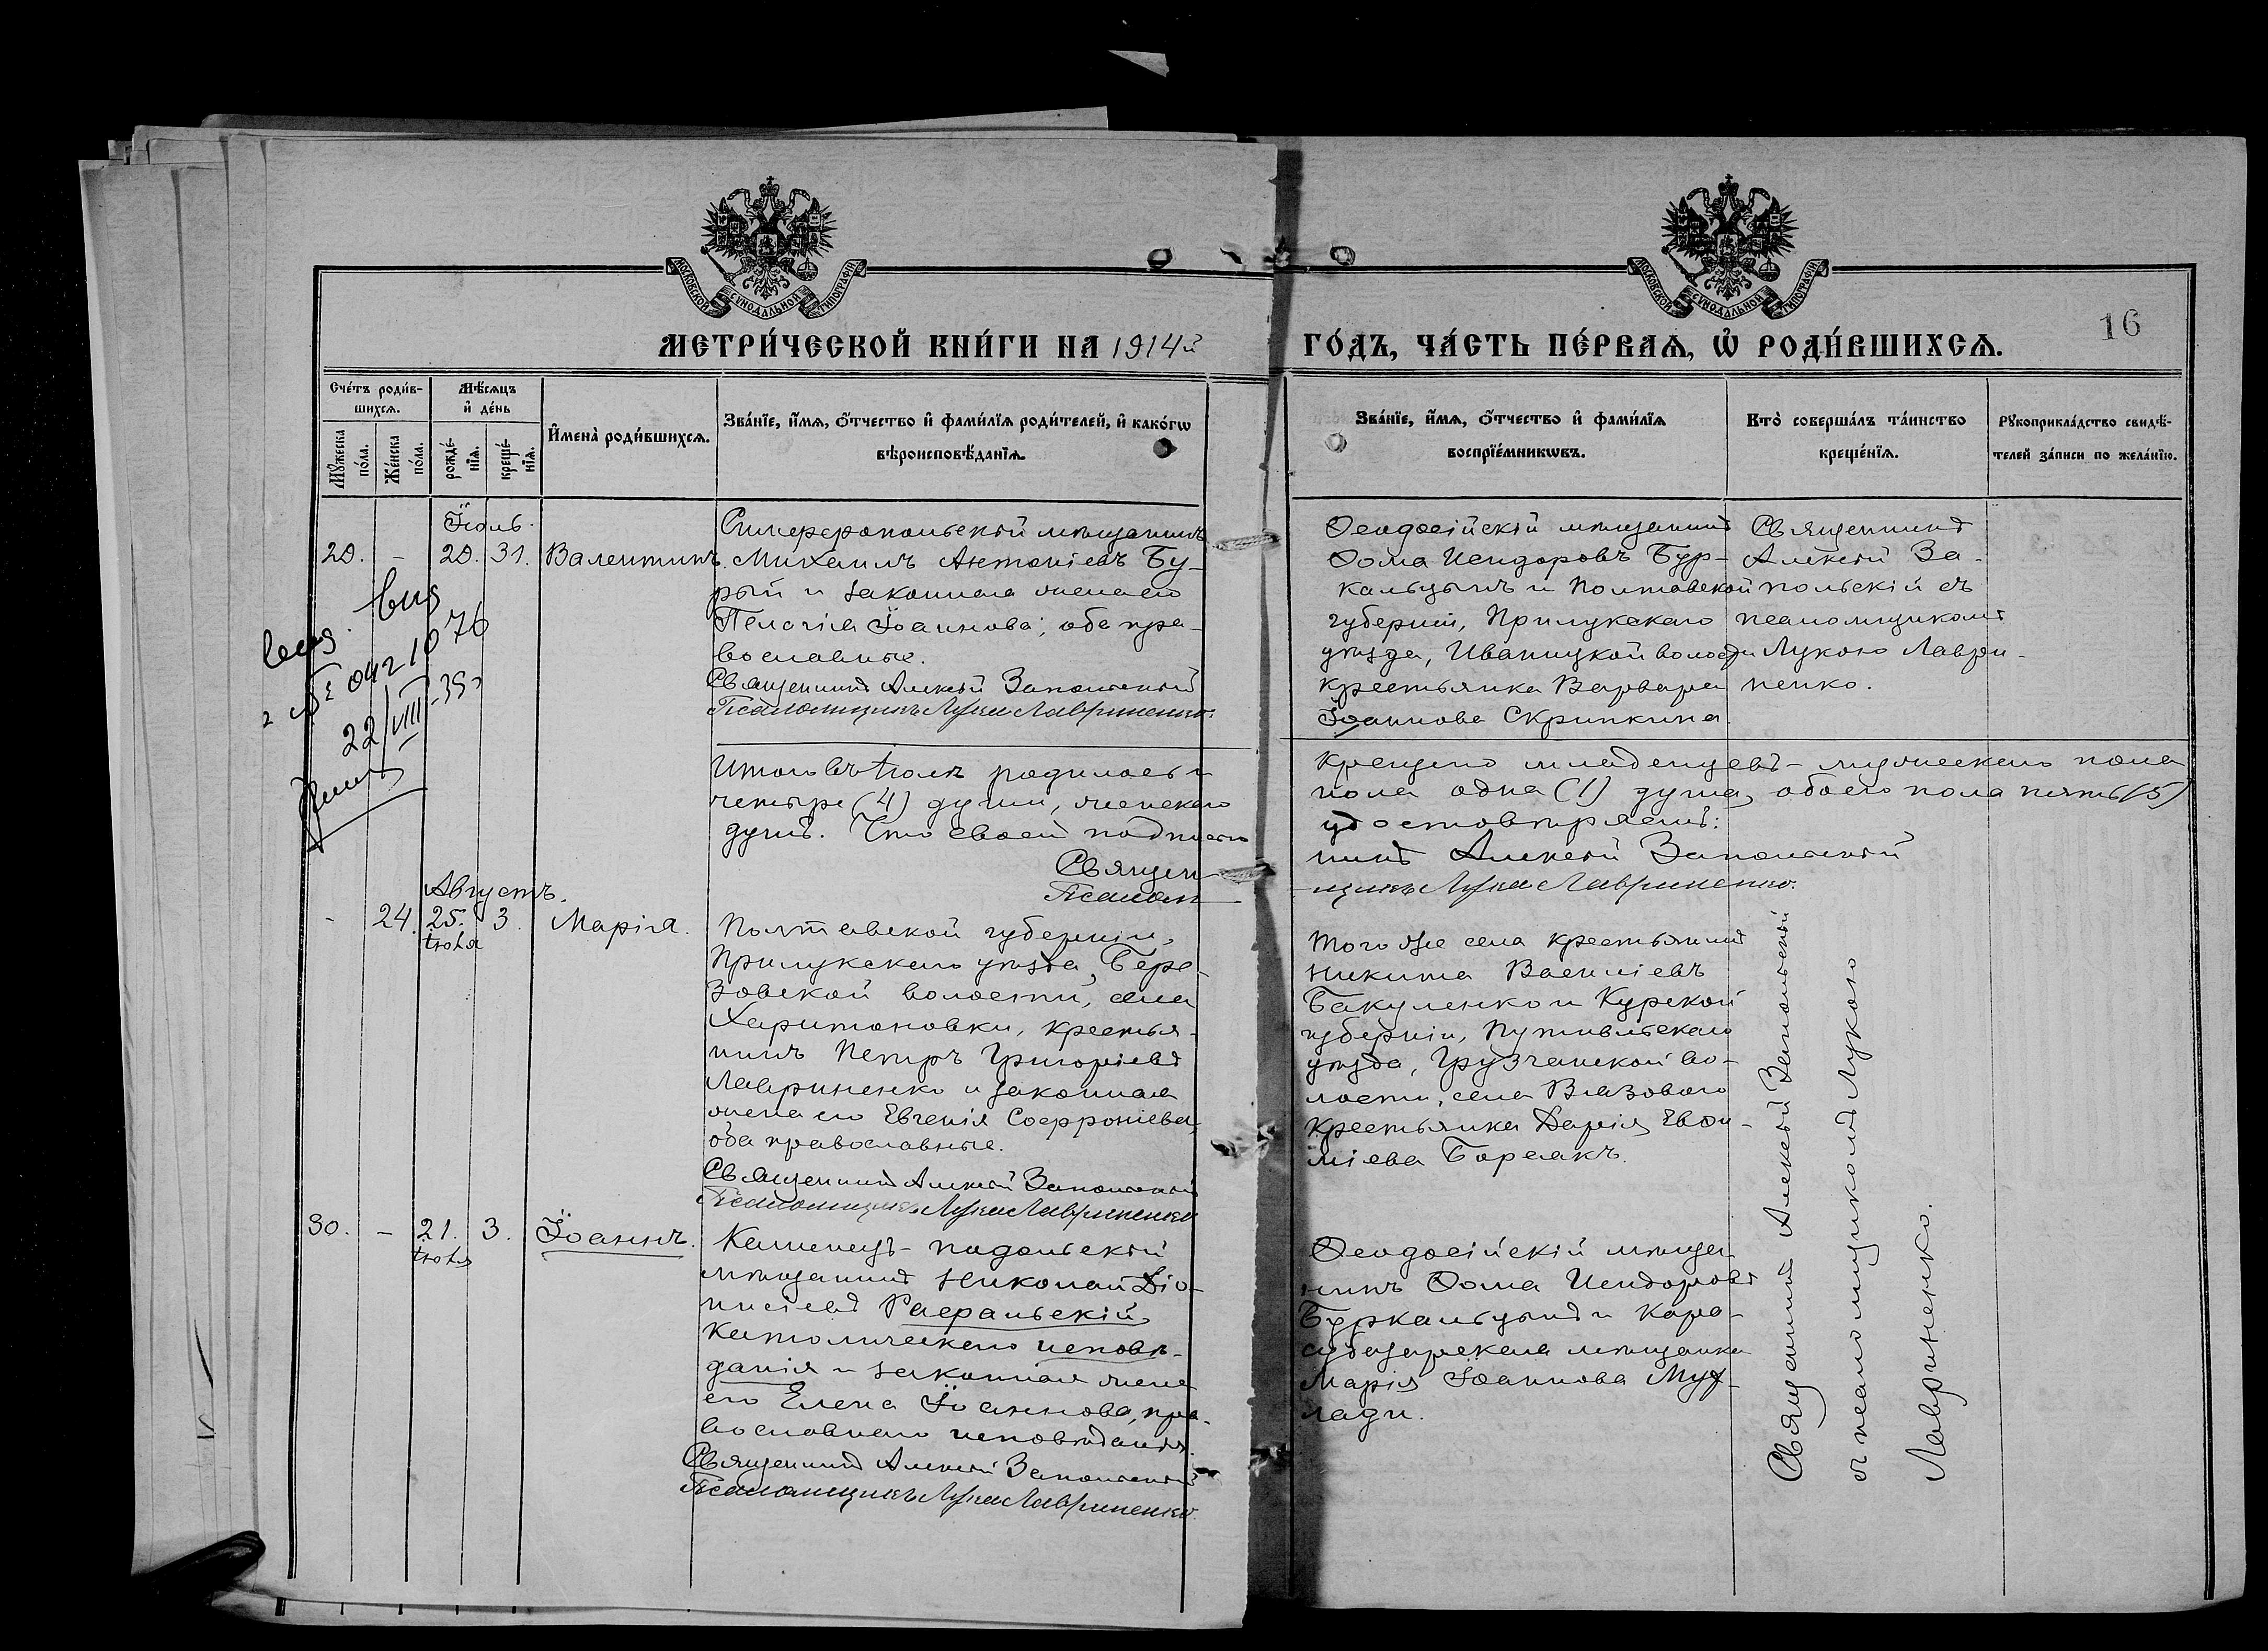 МОСКОВСКОЙ СѴНОДАЛЬНОЙ ТИПОГРАФІИ
МОСКОВСКОЙ СѴНОДАЛЬНОЙ ТИПОГРАФІИ
16
МЕТРИ́ЧЕСКОЙ КНИ́ГИ НА 1914й
ГО́ДЪ, ЧА́СТЬ ПЕ́РВАѦ, Ѡ҆ РОДИ́ВШИХСѦ.
Сче́тъ роди́в-
шихсѧ.
Мꙋ́жеска по́ла.
Же́нска по́ла.
Мѣ́сѧцъ
и҆ де́нь
рожде́-
нїѧ.
креще́-
нїѧ.
И҆мена̀ роди́вшихсѧ.
Зва́нїе, и҆́мѧ, ѻ҆́тчество и҆ фами́лїѧ роди́телей, и҆ како́гѡ
вѣроисповѣ́данїѧ.
Зва́нїе, и҆́мѧ, ѻ҆́тчество и҆ фами́лїѧ
воспрїе́мникѡвъ.
Кто̀ соверша́лъ та́инство
креще́нїѧ.
Рꙋкоприкла́дство свидѣ́-
телей за́писи по жела́нїю.
Іюль.
29. - 29. 31. Валентинъ.
Симферопольскій мѣщанинъ
Михаилъ Антоніевъ Бу-
рый и законная жена его
Пелагія Іоаннова, оба пра-
вославные.
Священникъ Алексѣй Запольскій
Псаломщикъ Лука Лавриненко.
Ѳеодосійскій мѣщанинъ
Ѳома Исидоровъ Бур-
кальцынъ и Полтавской
губерніи, Прилукскаго
уѣзда, Иваницкой волости
крестьянка Варвара
Іоаннова Скрипкина.
Священникъ
Алексѣй За-
польскій съ
псаломщикомъ
Лукою Лаври-
ненко.
0421076
22/VIII-39
Итого въ іюлѣ родилось и
четыре (4) души, женскаго
душъ. Что своей подписью
Священ-
Псалом-
крещено младенцевъ - мужескаго пола
пола одна (1) душа, обоего пола пять (5)
удостовѣряемъ:
никъ Алексѣй Запольскій
щикъ Лука Лавриненко.
Августъ.
- 24. 25. 3. Марія.
іюля
Полтавской губерніи,
Прилукскаго уѣзда, Бере-
зовской волости, села
Харитоновки, крестья-
нинъ Петръ Григоріевъ
Лавриненко и законная
жена его Евгенія Софроніева,
оба православные.
Священникъ Алексѣй Запольскій
Псаломщикъ Лука Лавриненко
Того же села крестьянинъ
Никита Василіевъ
Бакуленко и Курской
губерніи, Путивльскаго
уѣзда, Грузчанской во-
лости, села Вязоваго
крестьянка Дарія Евѳи-
міева
Священникъ Алексѣй Запольскій
съ псаломщикомъ Лукою
Лавриненко.
30. - 21. 3. Іоаннъ.
іюля
Каменецъ-подольскій
мѣщанинъ Николай Діо-
нисіевъ Рафальскій,
католическаго исповѣ-
данія и законная жена
его Елена Іоаннова, пра-
вославнаго исповѣданія.
Священникъ Алексѣй Запольскій
Псаломщикъ Лука Лавриненко.
Ѳеодосійскій мѣща-
нинъ Ѳома Исидоровъ
Буркальцынъ и Кара-
субазарская мѣщанка
Марія Іоаннова